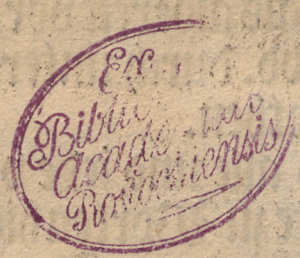 Ex
Biblio
Academiae
Rostochiensis